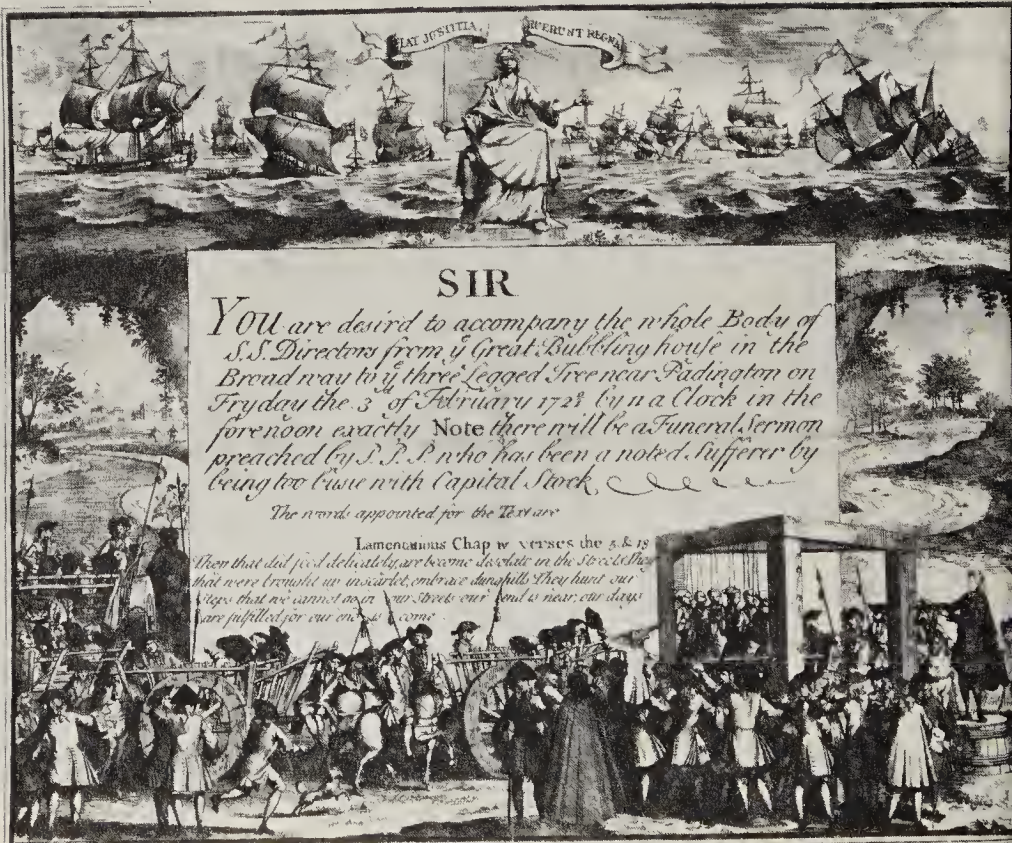 FIAT JUSTITIA RUERUNT REGNA
SIR
You are desird to accompany the whole Body of
S.S. Directors from yͤ Great Bubbling house in the
Broad way to yͤ three Legged Tree near Padington on
Fryday the 3ᵈ of February 172 by 11 a Clock in the
forenoon exactly Note there will be a Funeral Sermon
preached by S. P. P. who has been a noted Sufferer by
being too busie with Capital Stock.
The words appointed for the Text are
Lamentations Chap IV verses the 5. & 18
They that did feed delicately, are become desolate in the Streets They
that were brought up in scarlet, embrace dunghills They hunt our
steps that we cannot go in our Streets our end is near, our days
are fulfilled for our end is come